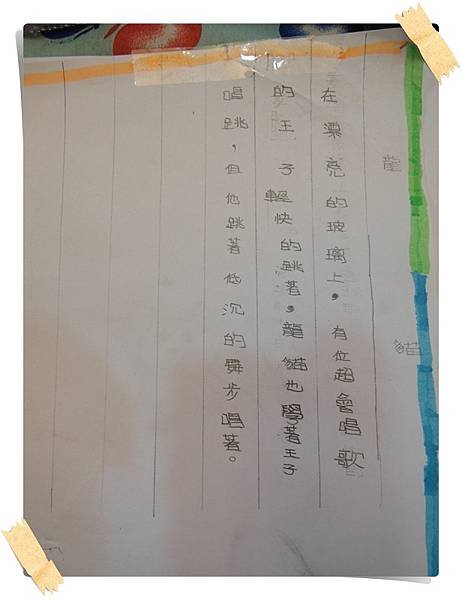 龍貓
在漂亮的玻璃上，有位超會唱歌
的王子輕快的跳著，龍貓也學著王子
唱跳，但他跳著低沉的舞步唱著。